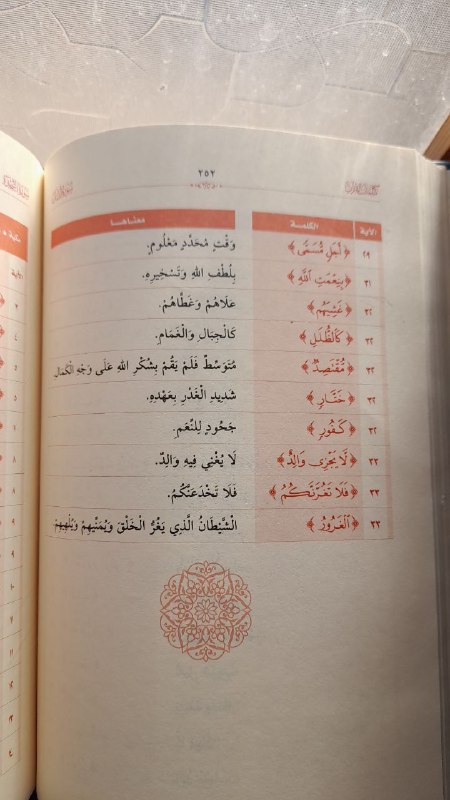 ٢٥٢
الآية الكلمة معناها
٢٩ ﴿أَجَلٍ مُّسَمًّى﴾ وَقْتٍ مُحَدَّدٍ مَعْلُومٍ.
٣١ ﴿بِنِعْمَتِ ٱللَّهِ﴾ بِلُطْفِ اللهِ وَتَسْخِيرِهِ.
٣٢ ﴿غَشِيَهُم﴾ عَلَاهُمْ وَغَطَّاهُمْ.
٣٢ ﴿كَٱلظُّلَلِ﴾ كَالْجِبَالِ وَالْغَمَامِ.
٣٢ ﴿مُّقْتَصِدٌ﴾ مُتَوَسِّطٌ فَلَمْ يَقُمْ بِشُكْرِ اللهِ عَلَى وَجْهِ الْكَمَالِ.
٣٢ ﴿خَتَّارٍ﴾ شَدِيدِ الْغَدْرِ بِعَهْدِهِ.
٣٢ ﴿كَفُورٍ﴾ جَحُودٍ لِلنِّعَمِ.
٣٣ ﴿لَّا يَجْزِي وَالِدٌ﴾ لَا يُغْنِي فِيهِ وَالِدٌ.
٣٣ ﴿فَلَا تَغُرَّنَّكُمُ﴾ فَلَا تَخْدَعَنَّكُمْ.
٣٣ ﴿ٱلْغَرُورُ﴾ الشَّيْطَانُ الَّذِي يَغُرُّ الْخَلْقَ وَيُمَنِّيهِمْ وَيُلْهِيهِمْ.